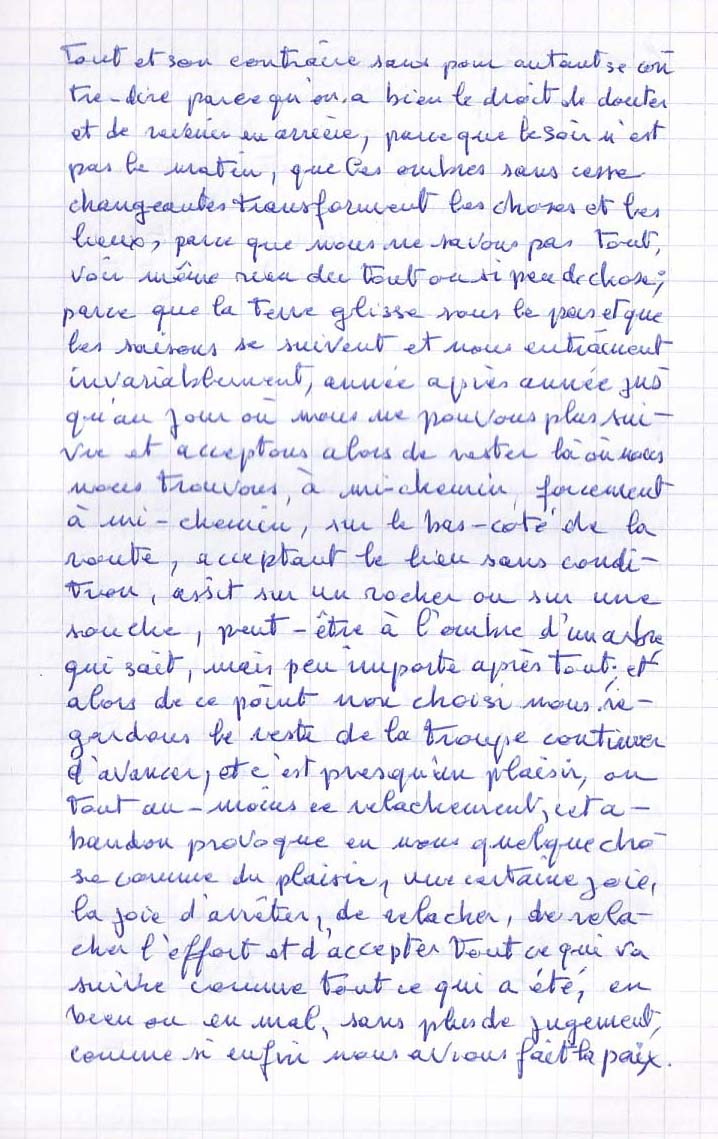 Tout et son contraire sans pour autant se con
tre-dire parce qu'on a bien le droit de douter
et de revenir en arrière, parce que le soir n'est
pas le matin, que les ombres sans cesse
changeantes transforment les choses et les
lieux, parce que nous ne savons pas tout,
voir même rien du tout ou si peu de chose;
parce que la terre glisse sous le pas et que
les saisons se suivent et nous entrainent
invariablement, année après année jus
qu'au jour où nous ne pouvons plus sui-
vre et acceptons alors de rester là où nous
nous trouvons, à mi-chemin, forcement
à mi-chemin, sur le bas-coté de la
route, acceptant le lieu sans condi-
tion, assit sur un rocher ou sur une
souche, peut-être à l'ombre d'un arbre
qui sait, mais peu importe après tout; et
alors de ce point non choisi nous re-
gardons le reste de la troupe continuer
d'avancer, et c'est presqu'un plaisir, ou
tout au-moins ce relachement, cet a-
bandon provoque en nous quelque cho
se comme du plaisir, une certaine joie,
la joie d'arrêter, de relacher, de rela-
cher l'effort et d'accepter tout ce qui va
suivre comme tout ce qui a été, en
bien ou en mal, sans plus de jugement,
comme si enfin nous avions fait la paix.